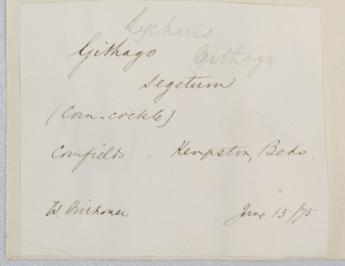 Lychnis
Githago Githago
segetum
(Corn-cockle)
Cornfields, Kempston, Beds.
W. Hillhouse June 13/75